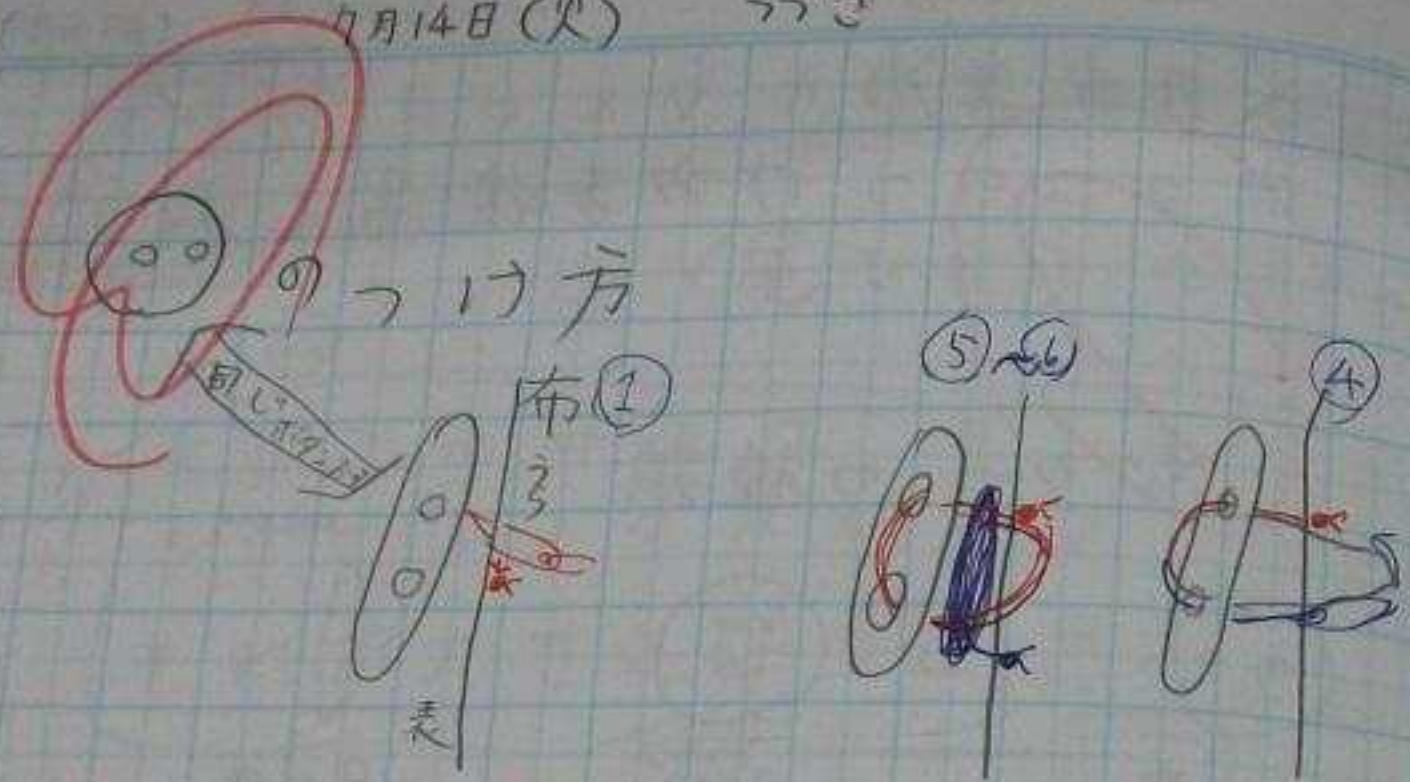 7月14日(火) つづき
のつけ方
同じボタンだよ
布①
う
表
⑤~⑥
④